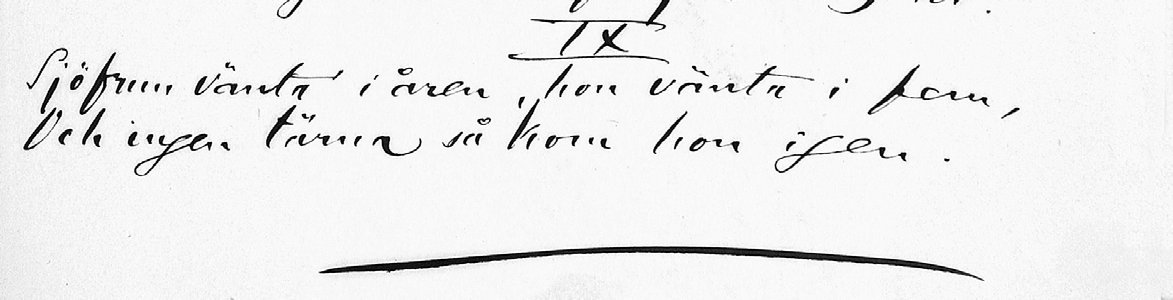 IX
Sjöfrun vänta i åren, hon vänta i fem,
Och ingen tärna så kom hon igen.